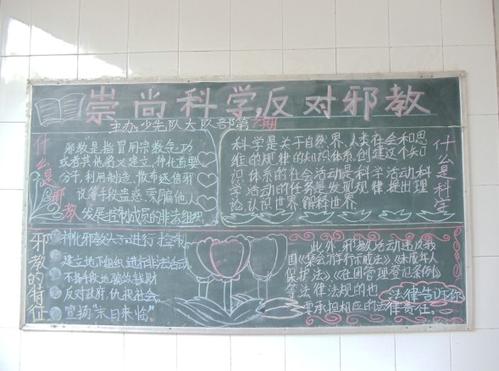 崇尚科学,反对邪教
主办:少先队大队部第
什么是邪教
邪教是指冒用宗教、气功
或者其他名义建立、神化首要
分子,利用制造、散布迷信邪
说等手段蛊惑、蒙骗他人,
发展、控制成员的非法组织
科学是关于自然界、人类社会和思
维的规律的知识体系,创建这个知
识体系的社会活动是科学活动,科
学活动的任务是发现规律,提出理
论,认识世界,解释世界
什么是科学
邪教的特征
神化邪教头子进行
建立地下组织,进行非法活动
不择手段地骗敛钱财
反对政府、仇视社会
宣扬"末日来临"
此外,邪教活动违反我
国《集会游行示威法》《未成年人
保护法》《社团管理登记条例》
等法律法规的也
要承担相应的法律责任。
法律告诉你